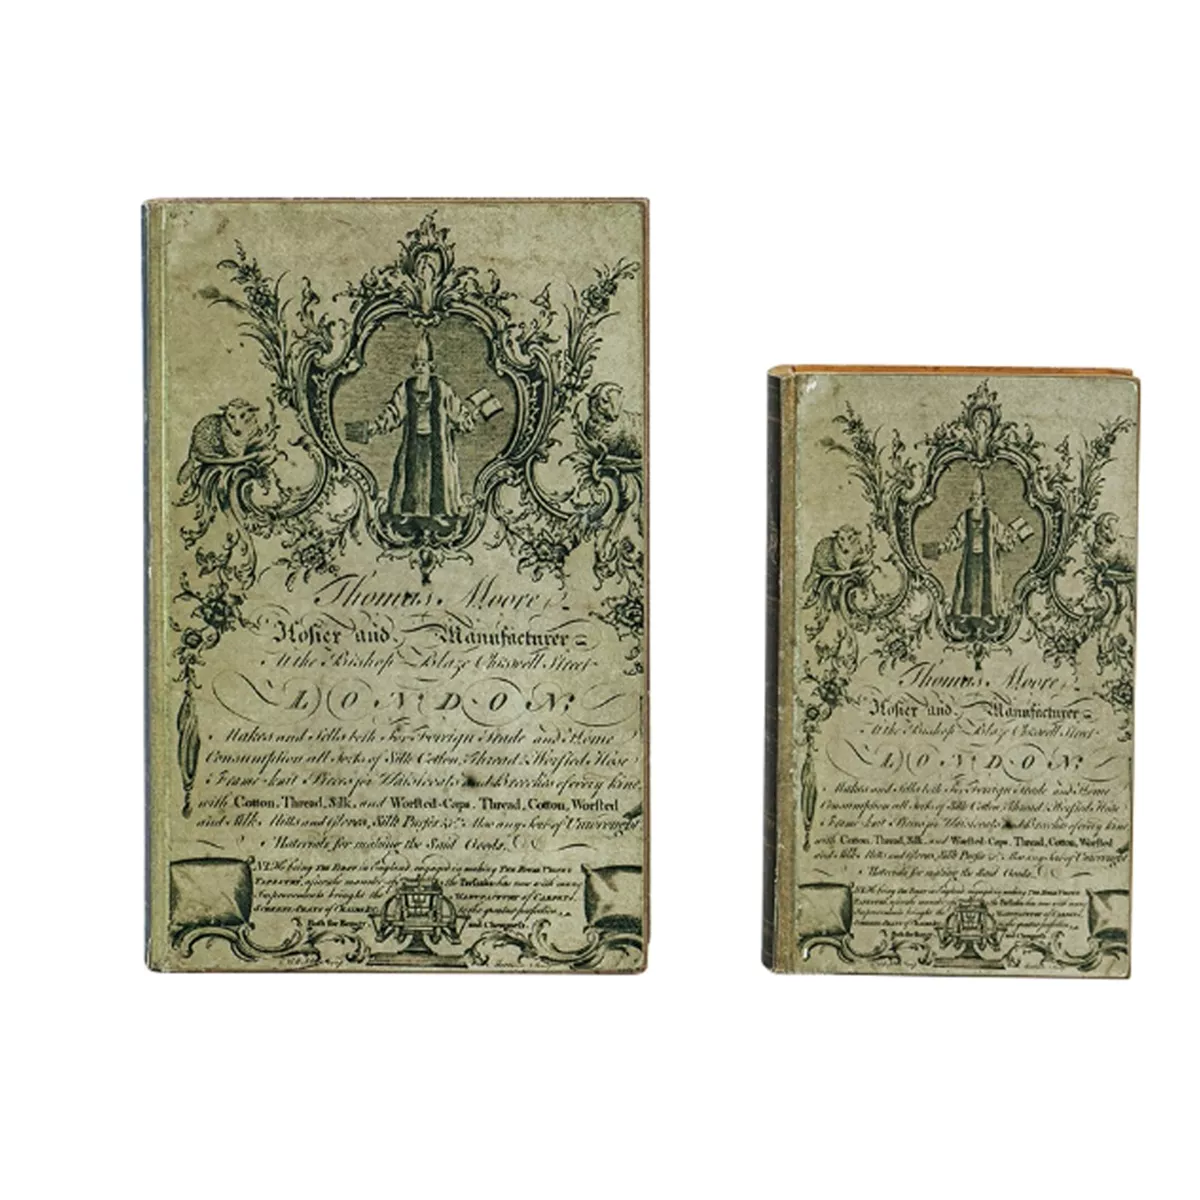 Thomas Moore
Hosier and Manufacturer
At the Bishop Blaze Chiswell Street
LONDON
Makes and Sells both For Foreign Trade and Home
Consumption all Sorts of Silk Cotton, Thread & Worsted Hose
Frame-knit Pieces for Waistcoats and Breeches of every kind
with Cotton, Thread, Silk, and Worsted-Caps, Thread, Cotton, Worsted
and Silk Mitts and Gloves, Silk Purses &c. Also any Sort of Unwrought
Materials for making the Said Goods.
NB He being THE FIRST in England engaged in making
TAPESTRY, the has now with many
Improvements brought the MANUFACTORY of CARPETS,
SCREENS, SEATS of CHAIRS &c. to the greatest perfection
Both for Beauty and Cheapness.
Thomas Moore
Hosier and Manufacturer
At the Bishop Blaze Chiswell Street
LONDON
Makes and Sells both For Foreign Trade and Home
Consumption all Sorts of Silk Cotton, Thread & Worsted Hose
Frame-knit Pieces for Waistcoats and Breeches of every kind
with Cotton, Thread, Silk, and Worsted-Caps, Thread, Cotton, Worsted
and Silk Mitts and Gloves, Silk Purses &c. Also any Sort of Unwrought
Materials for making the Said Goods.
NB He being THE FIRST in England engaged in making
TAPESTRY, the has now with many
Improvements brought the MANUFACTORY of CARPETS,
SCREENS, SEATS of CHAIRS &c. to the greatest perfection
Both for Beauty and Cheapness.